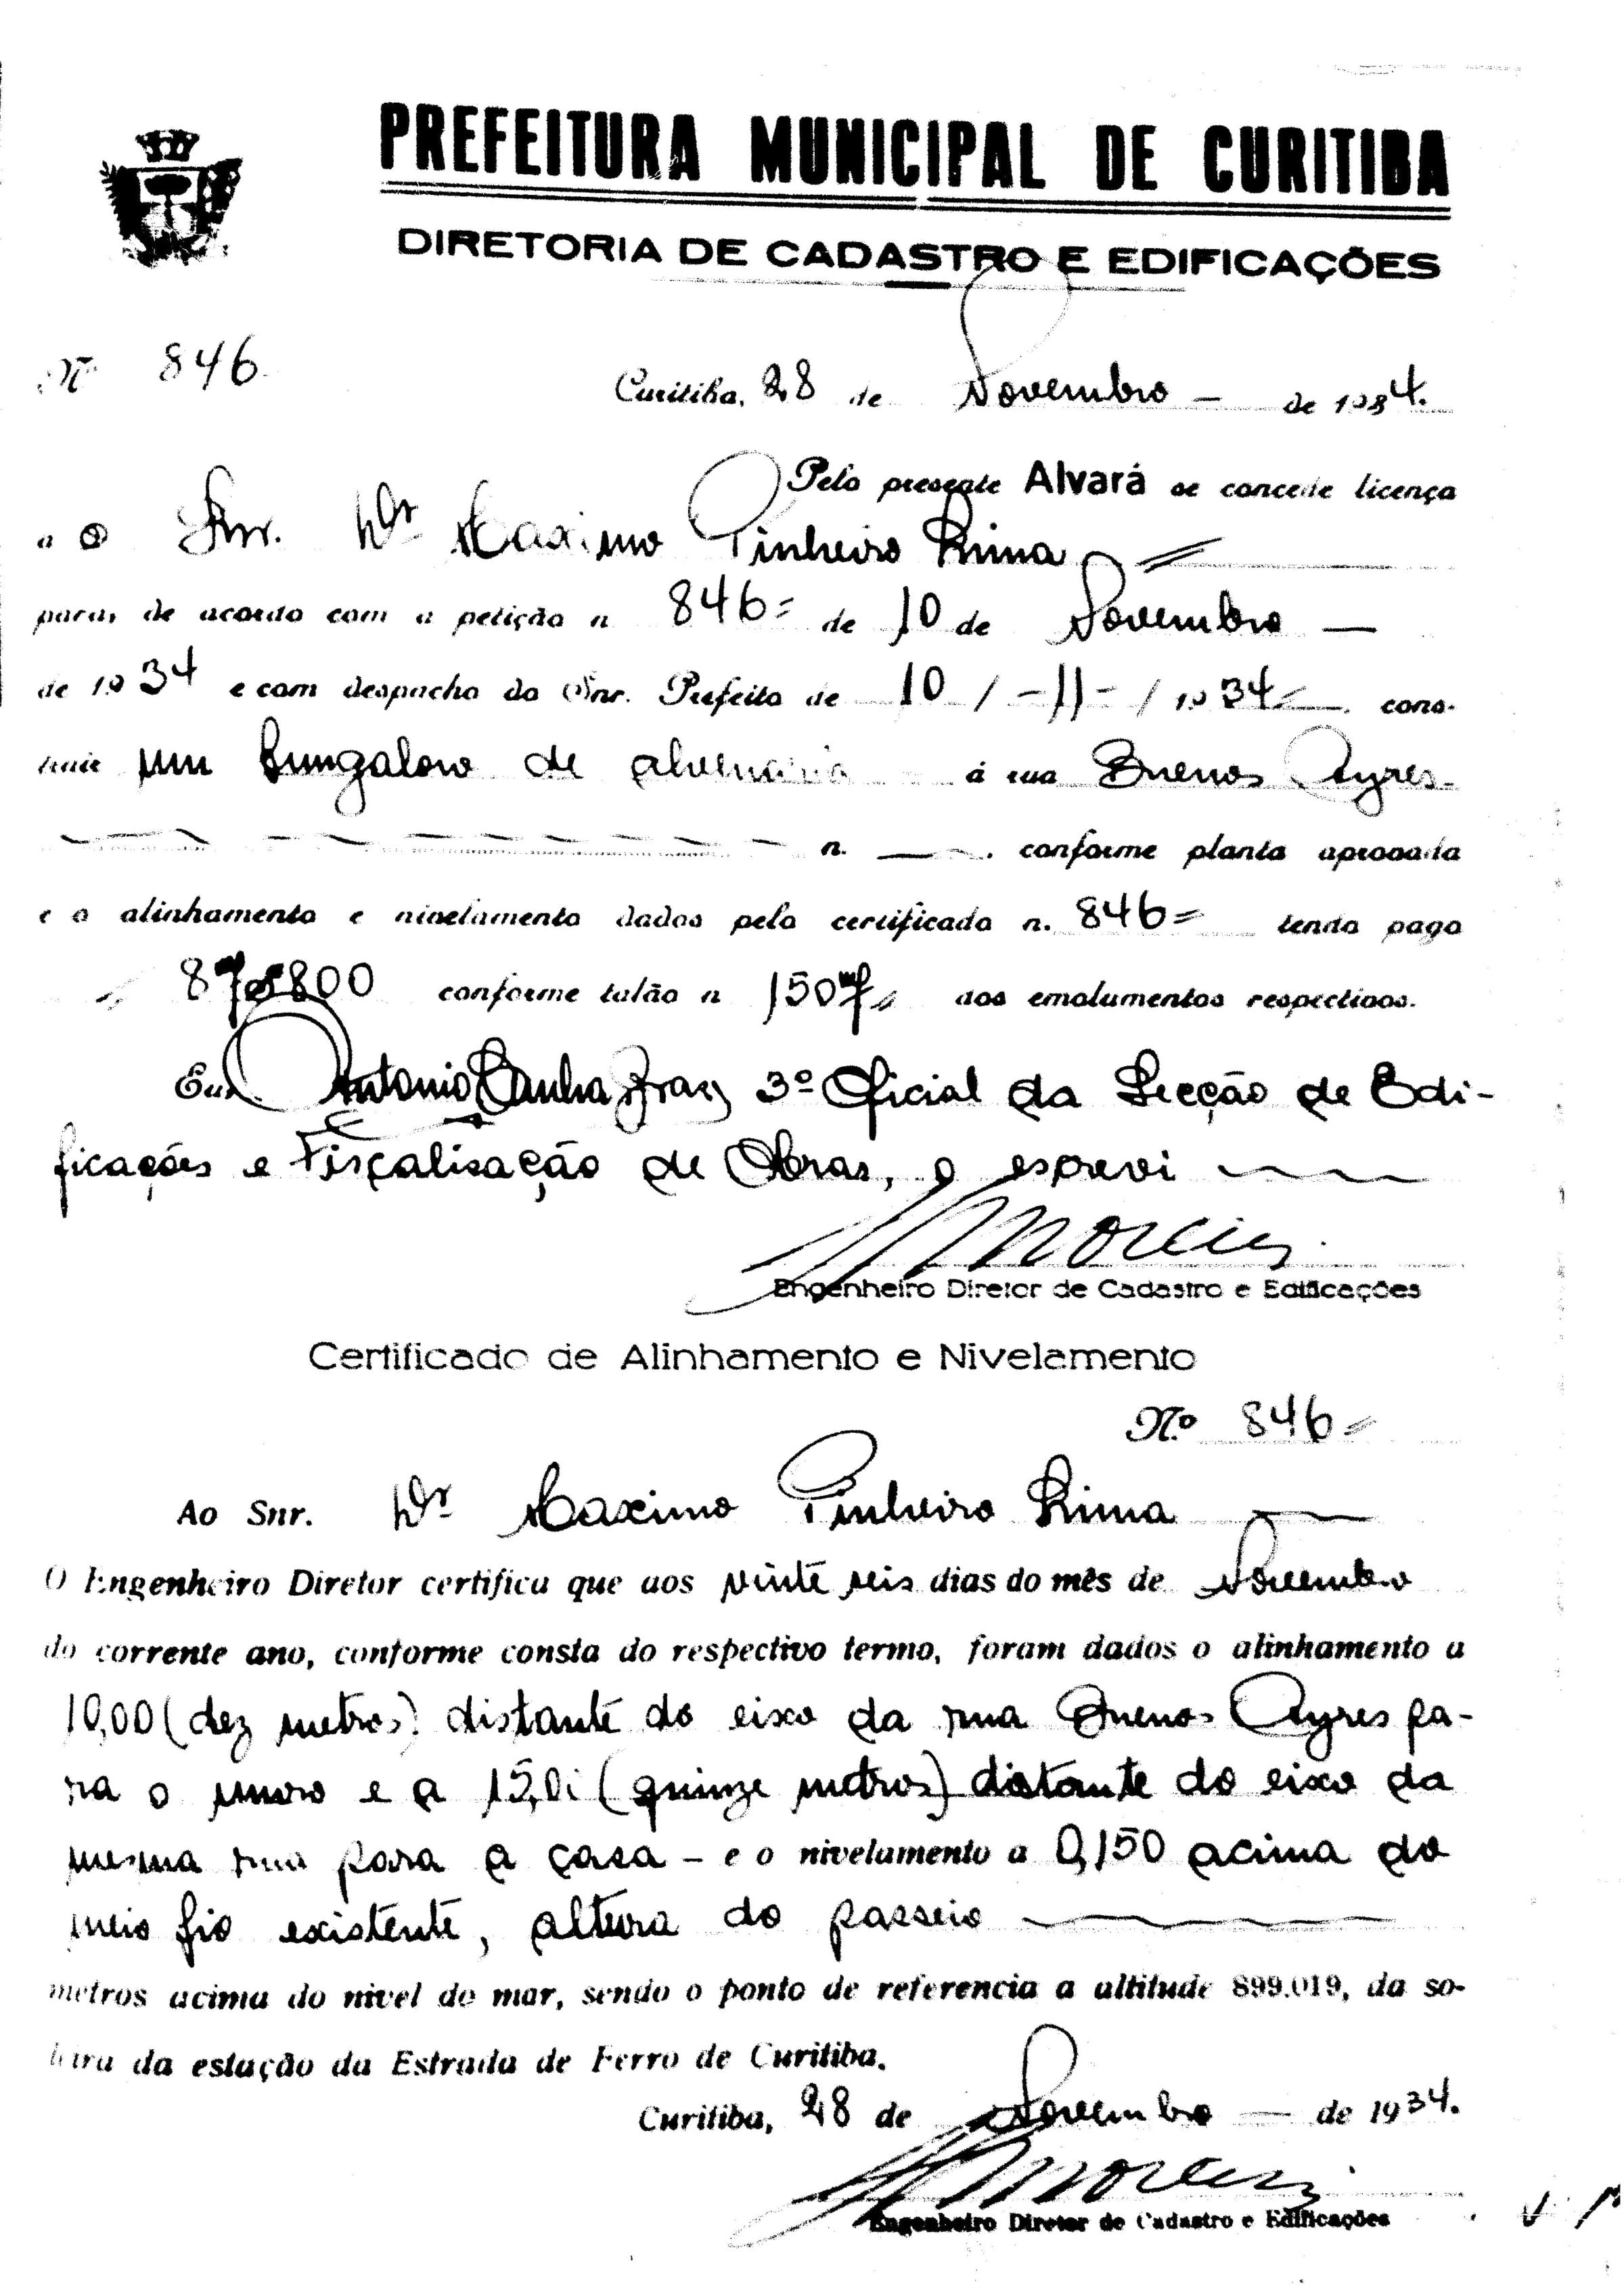 PREFEITURA MUNICIPAL DE CURITIBA
DIRETORIA DE CADASTRO E EDIFICAÇÕES
Nº 846
Curitiba, 28 de Novembro — de 1934.
Pelo presente Alvará se concede licença
a o Snr. Dr Maximo Pinheiro Lima
para, de acordo com a petição n 846 = de 10 de Novembro —
de 1934 e com despacho do Snr. Prefeito de 10 / - 11 - / 1934 cons-
truir um Bungalow de alvenaria á rua Buenos Ayres
n. — conforme planta aprovada
e o alinhamento e nivelamento dados pelo certificado n. 846 = tendo pago
conforme talão n 1507 dos emolumentos respectivos.
Eu, Antonio Cunha 3º Oficial da Secção de Edi-
ficações e Fiscalisação de Obras, o escrevi
Engenheiro Diretor de Cadastro e Edificações
Certificado de Alinhamento e Nivelamento
Nº 846 =
Ao Snr. Dr Maximo Pinheiro Lima
O Engenheiro Diretor certifica que aos vinte seis dias do mês de Novembro
do corrente ano, conforme consta do respectivo termo, foram dados o alinhamento a
10,00 (dez metros) distante do eixo da rua Buenos Ayres pa-
ra o muro e a 15,0 (quinze metros) distante do eixo da
mesma rua para a casa - e o nivelamento a 0,150 acima do
meio fio existente, altura do passeio
metros acima do nivel do mar, sendo o ponto de referencia a altitude 899.019, da so-
leira da estação da Estrada de Ferro de Curitiba.
Curitiba, 28 de Novembro — de 1934.
Engenheiro Diretor de Cadastro e Edificações